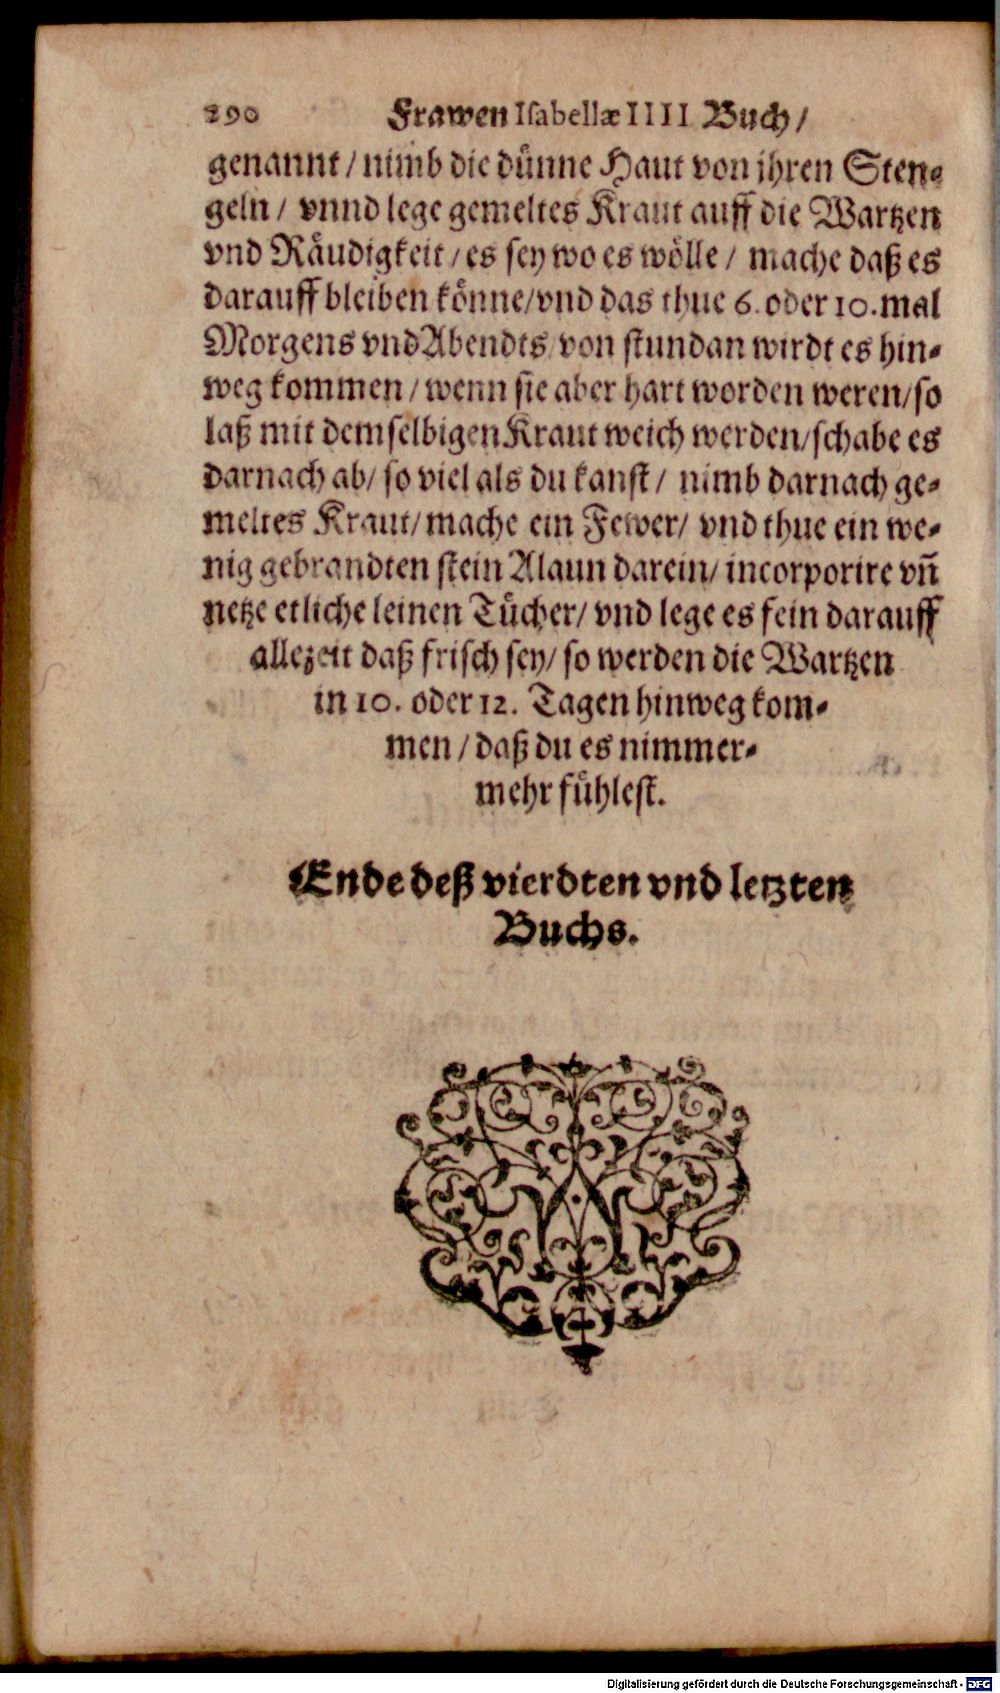 290 Frawen Isabellæ IIII Buch /
genannt / nimb die dünne Haut von jhren Sten-
geln / vnnd lege gemeltes Kraut auff die Wartzen
vnd Räudigkeit / es sey wo es wölle / mache daß es
darauff bleiben könne / vnd das thue 6. oder 10. mal
Morgens vnd Abendts / von stundan wirdt es hin-
weg kommen / wenn sie aber hart worden weren / so
laß mit demselbigen Kraut weich werden / schabe es
darnach ab / so viel als du kanst / nimb darnach ge-
meltes Kraut / mache ein Fewer / vnd thue ein we-
nig gebrandten stein Alaun darein / incorporire vñ
netze etliche leinen Tücher / vnd lege es fein darauff
allezeit daß frisch sey / so werden die Wartzen
in 10. oder 12. Tagen hinweg kom-
men / daß du es nimmer-
mehr fühlest.
Ende deß vierdten vnd letzten
Buchs.
Digitalisierung gefördert durch die Deutsche Forschungsgemeinschaft - DFG